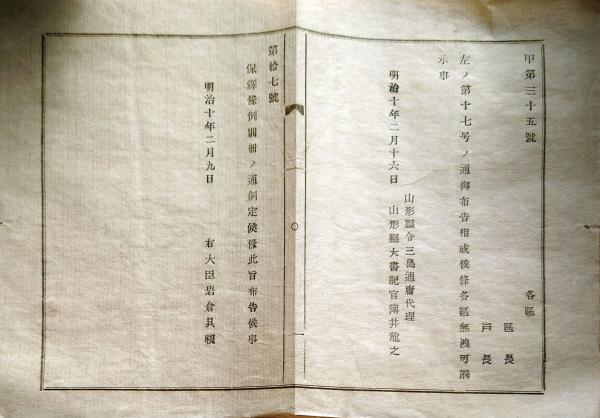 甲第三十五號
各區
區長
戸長
左ノ第十七号ノ通御布告相成候條各區無洩可觸
示事
明治十年二月十六日
山形縣令三島通庸代理
山形縣大書記官薄井龍之
第拾七號
保釋條例別冊ノ通制定候條此旨布告候事
明治十年二月九日
右大臣岩倉具視